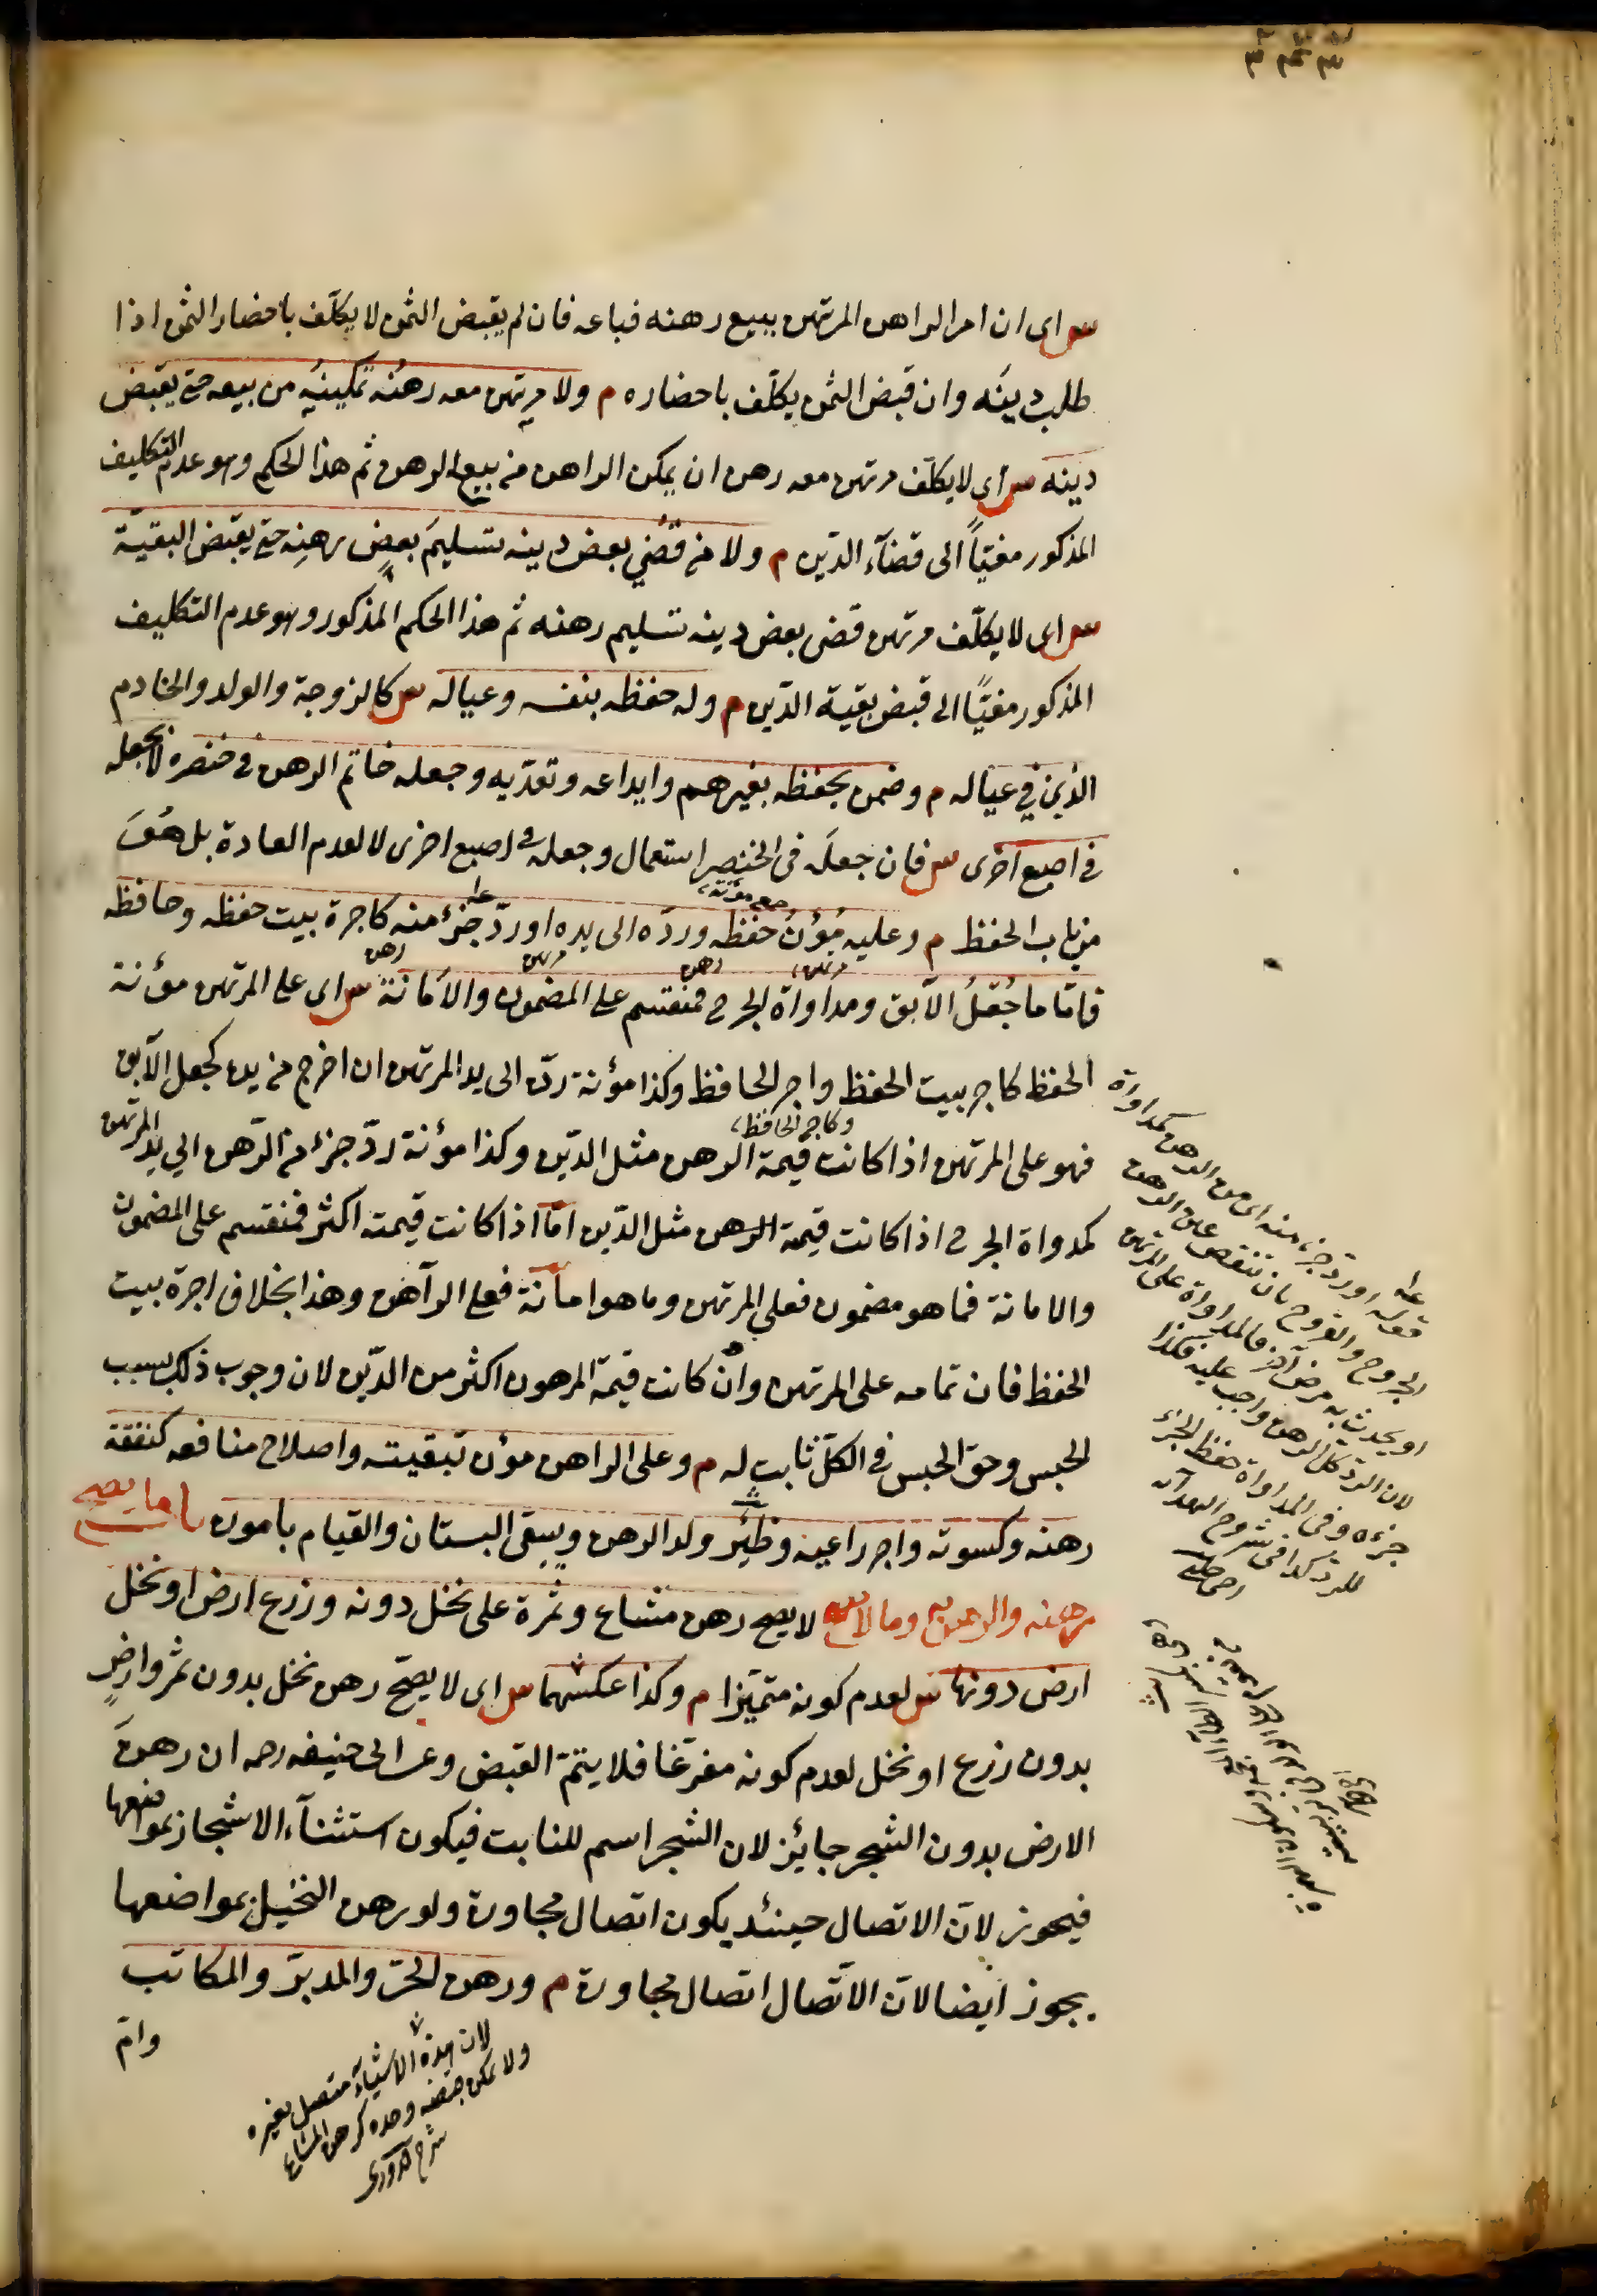 س اى ان امر الراهن المرتهن ببيع رهنه فباعه فان لم يقبض الثمن لا يكلّف باحضار الثمن اذا
طلب دينَه وان قبض الثمن يكلّف باحضاره م ولا مرتهن معه رهنُه تمكينُه من بيعه حتى يقبض
دينه س اى لا يكلّف مرتهن معه رهن ان يمكن الراهن من بيع الرهن ثم هذا الحكم وهو عدم التكليف
المذكور مغيّاً الى قضآء الدّين م ولا من قضى بعض دينه تسليمَ بعض رهنِه حتى يقبض البقيّة
س اى لا يكلّف مرتهن قضى بعض دينه تسليم رهنه ثم هذا الحكم المذكور وهو عدم التكليف
المذكور مغيّاً الى قبض بقية الدّين م وله حفظه بنفسه وعياله س كالزوجة والولد والخادم
الذين في عياله م وضمن بحفظه بغيرهم وايداعه وتعدّيه وجعله خاتم الرهن فى خنصره لا بجعله
فى اصبع اخرى س فان جعلَه فى الخنصر استعمال وجعله فى اصبع اخرى لا لعدم العادة بل هُوَ
من باب الحفظ م وعليه مُؤَنُ حفظه وردّه الى يده او ردّ جزء منه كاجرة بيت حفظه وحافظه
فامّا ما جُعْلُ الآبق ومداواة الجرح فمنقسم على المضمون والامانة س اى على المرتهن مؤنة
الحفظ كاجر بيت الحفظ واجر الحافظ وكذا مؤنة ردّه الى يد المرتهن ان اخرج من يده كجعل الآبق
وكاجر الحافظ
فهو على المرتهن اذا كانت قيمة الرهن مثل الدّين وكذا مؤنة ردّ جزء من الرّهن الى يد المرتهن
كمداواة الجرح اذا كانت قيمة الرهن مثل الدّين امّا اذا كانت قيمته اكثر فمنقسم على المضمون
والامانة فما هو مضمون فعلى المرتهن وما هو امانة فعلى الرآهن وهذا بخلاف اجرة بيت
الحفظ فان تمامه على المرتهن وان كانت قيمة المرهون اكثر من الدّين لان وجوب ذلك بسبب
الحبس وحق الحبس فى الكلّ ثابت له م وعلى الراهن مؤن تبقيته واصلاح منافعه كنفقة
رهنه وكسوته واجر راعيه وظئر ولد الرهن وسقى البستان والقيام باموره باب ما يصح
رهنه والرهن به وما لا يصح لا يصح رهن مشاع وثمرة على نخل دونه وزرع ارض او نخل
ارض دونها س لعدم كونه متميّزا م وكذا عكسهما س اى لا يصحّ رهن نخل بدون ثمر وارضٍ
بدون زرع او نخل لعدم كونه مفرّغا فلا يتمّ القبض وعن ابى حنيفه رحه ان رهن
الارض بدون الشجر جايئز لان الشجر اسم للنابت فيكون استثنآء الاشجار بمواضعها
فيجوز لانّ الاتصال حينئد يكون اتصال مجاورة ولو رهن النخيل بمواضعها
يجوز ايضا لانّ الاتّصال اتصال مجاورة م ورهن الحرّ والمدبّر والمكاتب
وامّ
قوله او ردّ جزء منه اى من الرهن كمداواة
الجروح والقروح بان تنقص عين الرهن
او يحدث به مرض آخر فالمداواة على المرتهن
لان الردّ كلّ الرهن واجب عليه فكذا
جزءه وفى المداواة حفظ الجزء
للرد كذا فى شروح الهداية
لان هذه الاشيآء متصل بغيره
ولا يمكن قبضه وحده كرهن المشاع
شرح قدورى